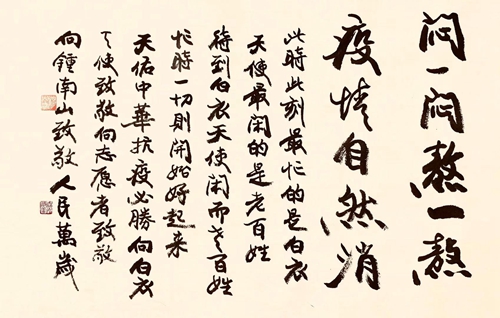 闷一闷熬一熬
疫情自然消
此時此刻最忙的是白衣
天使最闲的是老百姓
待到白衣天使闲而老百姓
忙時一切則開始好起来
天佑中華抗疫必勝向白衣
天使致敬向志愿者致敬
向鍾南山致敬人民萬歲